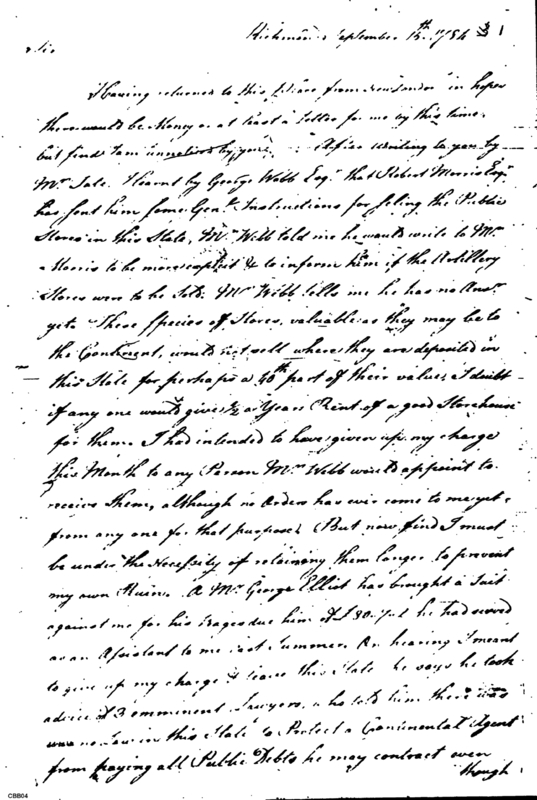 Richmond September 15th 1784
Sir
Having returned to this place from New London in hopes
there would be Money or at least a Letter for me by this time.
but find I am unnoticed by you. After writing to you by
Mr. Tate. I learnt by George Webb Esqr. that Robert Morris Esqr.
has sent him some Genl. Instructions for seling the Public
Stores in this State, Mr. Webb told me he would write to Mr.
Morris to be more explicit & to inform him if the Artillery
Stores were to be Sold. Mr. Webb tells me he has no Answr.
yet. These species of Stores, valuable as they may be to
the Continent, would not sell where they are deposited in
this State for perhaps a 40th part of their value, I doubt
if any one would give ½ a Years Rent of a good Storehouse
for them. I had intended to have given up my charge
this Month to any Person Mr. Webb would appoint to
receive them, although no Orders has ever come to me yet
from any one for that purpose. But now find I must
be under the Necessity of retaining them longer to prevent
my own Ruin. A Mr. George Elliot has brought a Suit
against me for his wages due him he had served
as an Assistant to me last Summer. On hearing I meant
to give up my charge & leave this State he says he took
advice of 3 emminent Lawyers, who told him there was
no Law in this State to Protect a Continental Agent
from paying all Public Debts he may contract even
though
CBB04